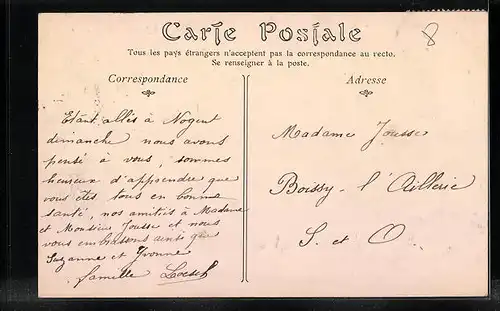 Carte Postale
Tous les pays étrangers n'acceptent pas la correspondance au recto.
Se renseigner à la poste.
Correspondance
Adresse
8
Etant allés à Nogent
dimanche nous avons
pensé à vous, sommes
heureux d'apprendre que
vous êtes tous en bonne
santé, nos amitiés à Madame
et Monsieur Jousse et nous
vous embrassons ainsi que
Suzanne et Yvonne
famille
Madame Jousse
Boissy-l'Aillerie
S. et O.